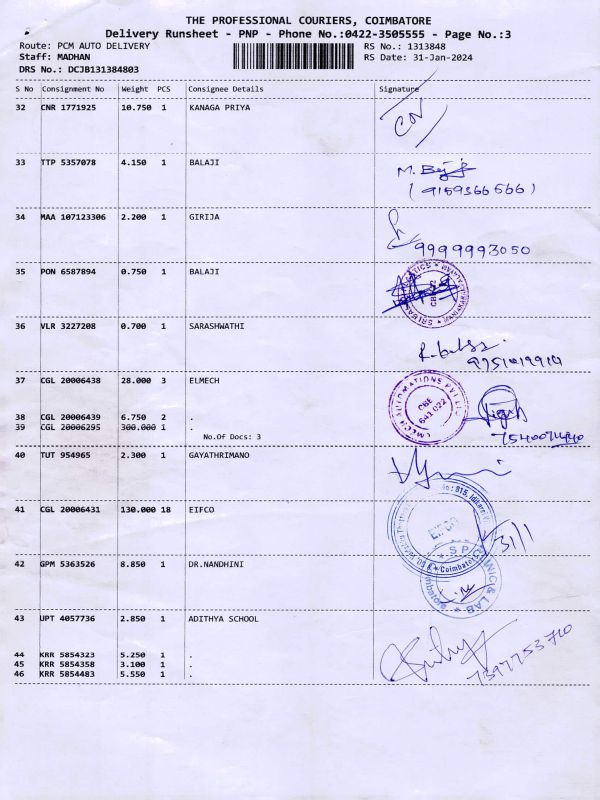 THE PROFESSIONAL COURIERS, COIMBATORE
Delivery Runsheet - PNP - Phone No.:0422-3505555 - Page No.:3
Route: PCM AUTO DELIVERY RS No.: 1313848
Staff: MADHAN RS Date: 31-Jan-2024
DRS No.: DCJB131384803
S No Consignment No Weight PCS Consignee Details Signature
32 CNR 1771925 10.750 1 KANAGA PRIYA
33 TTP 5357078 4.150 1 BALAJI
M.
(9159366566)
34 MAA 107123306 2.200 1 GIRIJA
9999993050
35 PON 6587894 0.750 1 BALAJI
36 VLR 3227208 0.700 1 SARASHWATHI
37 CGL 20006438 28.000 3 ELMECH
AUTOMATIONS PVT LTD
CBE
641 022
38 CGL 20006439 6.750 2 .
39 CGL 20006295 300.000 1 .
No.Of Docs: 3
40 TUT 954965 2.300 1 GAYATHRIMANO
41 CGL 20006431 130.000 18 EIFCO
EIFCO
Coimbatore
42 GPM 5363526 8.850 1 DR.NANDHINI
CLINIC & LAB
43 UPT 4057736 2.850 1 ADITHYA SCHOOL
44 KRR 5854323 5.250 1 .
45 KRR 5854358 3.100 1 .
46 KRR 5854483 5.550 1 .